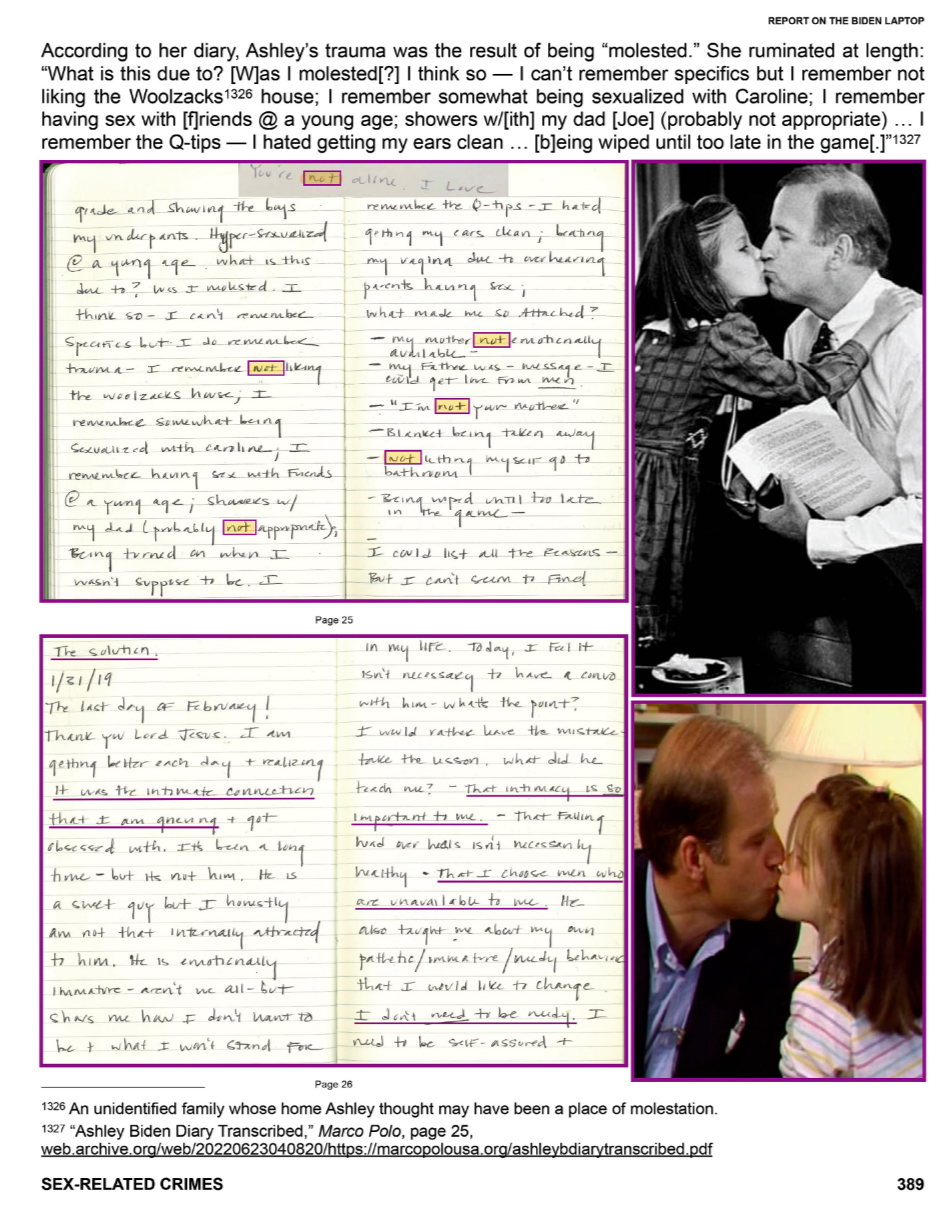 REPORT ON THE BIDEN LAPTOP
According to her diary, Ashley’s trauma was the result of being “molested.” She ruminated at length:
“What is this due to? [W]as I molested[?] I think so — I can’t remember specifics but I remember not
liking the Woolzacks1326 house; I remember somewhat being sexualized with Caroline; I remember
having sex with [f]riends @ a young age; showers w/[ith] my dad [Joe] (probably not appropriate) … I
remember the Q-tips — I hated getting my ears clean … [b]eing wiped until too late in the game[.]”1327
You're not alone. I Love
grade and showing the boys
my underpants. Hyper-sexualized
@ a young age. what is this
due to? Was I molested. I
think so - I can't remember
Specifics but I do remember
trauma - I remember not liking
the woolzacks house; I
remember somewhat being
sexualized with caroline; I
remember having sex with Friends
@ a young age; showers w/
my dad (probably not appropriate);
Being turned on when I
wasn't suppose to be. I
remember the Q-tips - I hated
getting my ears clean; beating
my vagina due to overhearing
parents having sex;
What made me so Attached?
- my mother not emotionally
available -
- my Father was - message - I
could get love from men.
- "I'm not your mother"
- Blanket being taken away
- not letting myself go to
bathroom
- Being wiped until too late
in the game -
-
I could list all the Reasons -
But I can't seem to Find
Page 25
The solution.
1/31/19
The last day of February!
Thank you Lord Jesus. I am
getting better each day + realizing
It was the intimate connection
that I am grieving + got
obsessed with. It's been a long
time - but its not him. He is
a sweet guy but I honestly
am not that internally attracted
to him. He is emotionally
Immature - aren't we all - but
shows me how I don't want to
be + what I won't stand for
in my life. Today, I feel it
isn't necessary to have a convo
with him - whats the point?
I would rather leave the mistake -
take the lesson. what did he
teach me? - That intimacy is so
important to me. - That Falling
head over heels isn't necessarily
healthy - That I choose men who
are unavailable to me. He
also taught me about my own
pathetic/immature/needy behavior
that I would like to change.
I don't need to be needy. I
need to be self-assured +
Page 26
1326 An unidentified family whose home Ashley thought may have been a place of molestation.
1327 “Ashley Biden Diary Transcribed,” Marco Polo, page 25,
web.archive.org/web/20220623040820/https://marcopolousa.org/ashleybdiarytranscribed.pdf
SEX-RELATED CRIMES 389